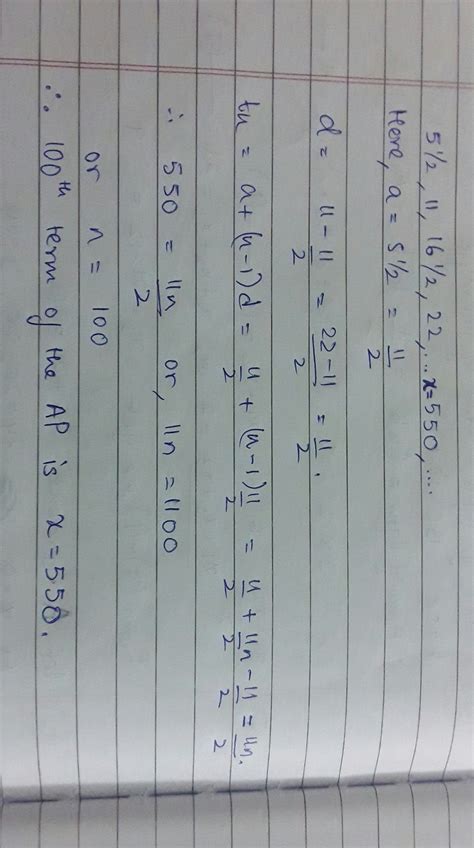 5 1/2, 11, 16 1/2, 22, ... x=550, ....
Here, a = 5 1/2 = 11/2
d = 11 - 11/2 = (22-11)/2 = 11/2.
tn = a+(n-1)d = 11/2 + (n-1)11/2 = 11/2 + 11n/2 - 11/2 = 11n/2.
∴ 550 = 11n/2 or, 11n = 1100
or n = 100
∴ 100th term of the AP is x=550.